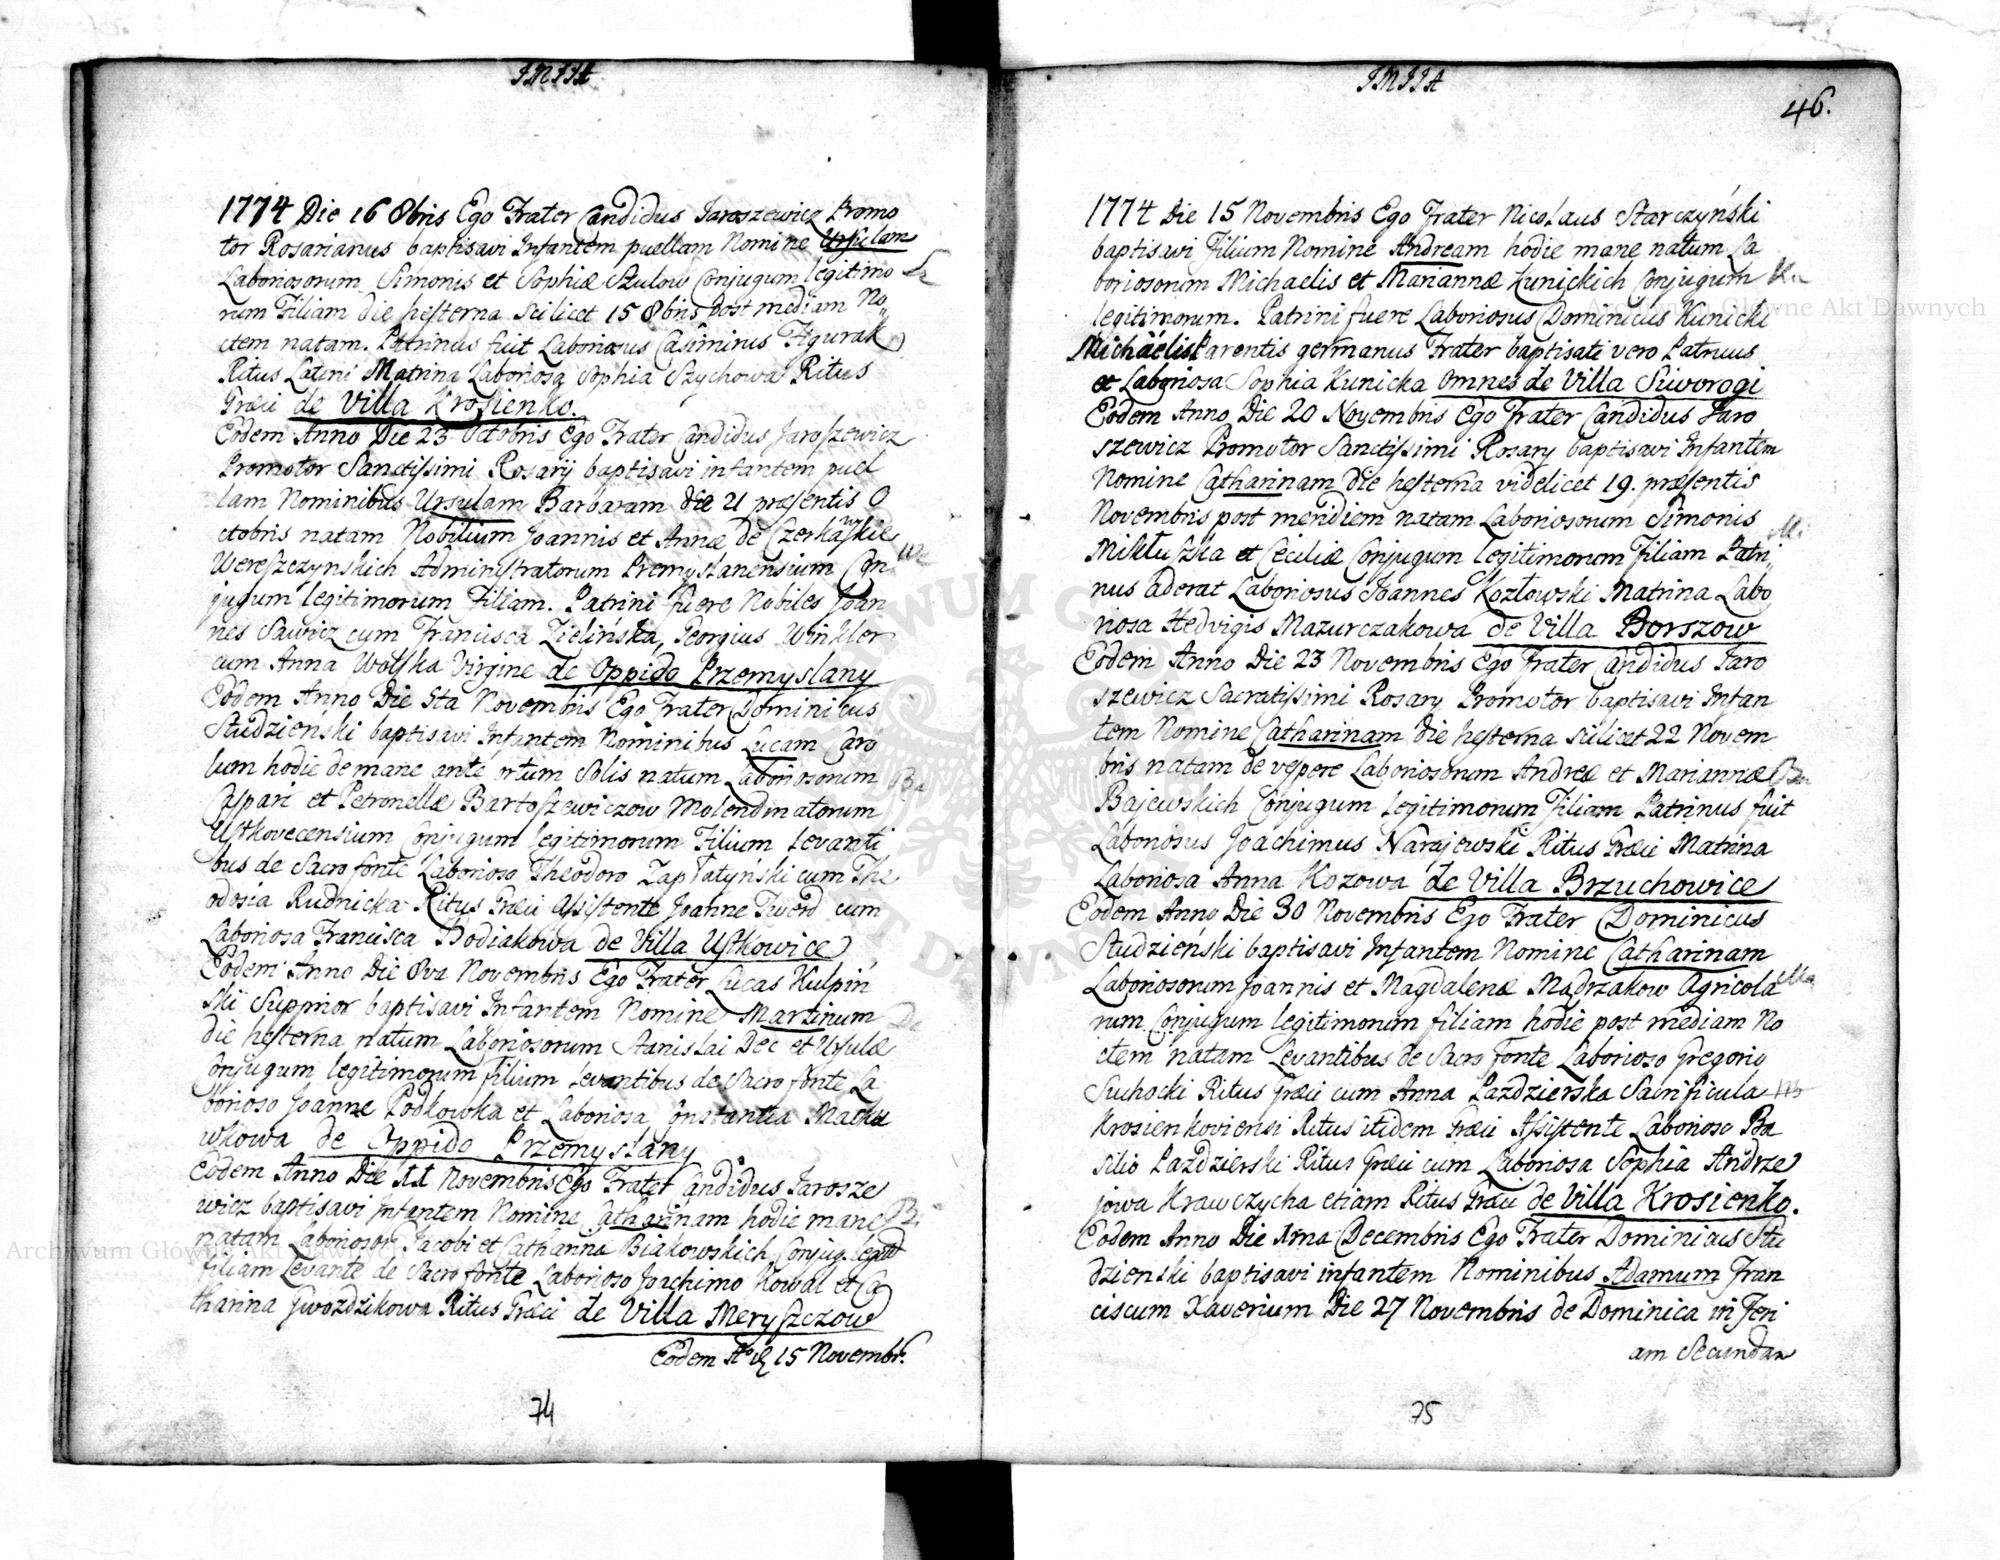 IMIIA
1774 Die 16 8bris Ego Frater Candidus Jaroszewicz Promo
tor Rosarianus baptisavi Infantem puellam Nomine Ursulam
Laboriosorum Simonis et Sophiæ Szulow Conjugum legitimo
rum Filiam die hesterna scilicet 15 8bris post mediam No
ctem natam. Patrinus fuit Laboriosus Casimirus Figurak
Ritus Latini Matrina Laboriosa Sophia Szychowa Ritus
Græci de Villa Krosienko.
Eodem Anno Die 23 Octobris Ego Frater Candidus Jaroszewicz
Promotor Sanctissimi Rosarij baptisavi infantem puel
lam Nominibus Ursulam Barbaram die 21 præsentis O
ctobris natam Nobilium Joannis et Annæ de Czerkawskie
Wereszczynskich Administratorum Premyslanensium Con
jugum legitimorum Filiam. Patrini fuere Nobiles Joan
nes Sawicz cum Francisca Zielińska, Georgius Winkler
cum Anna Wolska Virgine de Oppido Przemyslany
Eodem Anno Die 5ta Novembris Ego Frater Dominicus
Studzieński baptisavi Infantem Nominibus Lucam Caro
lum hodie de mane ante ortum Solis natum Laboriosorum
Caspari et Petronellæ Bartoszewiczow Molendinatorum
Ustkovecensium Conjugum legitimorum Filium Levanti
bus de Sacro fonte Laborioso Theodoro Zaplatyński cum The
odosia Rudnicka Ritus Græci Assistente Joanne Twerd cum
Laboriosa Francisca Dodiakowa de Villa Ustkowice
Eodem Anno Die 8va Novembris Ego Frater Lucas Kulpiń
ski Supprior baptisavi Infantem Nomine Martinum
die hesterna natum Laboriosorum Stanislai Dec et Ursulæ
Conjugum legitimorum filium Levantibus de Sacro fonte La
borioso Joanne Podkowka et Laboriosa Constantia Macku
wkowa de Oppido Przemyslany
Eodem Anno Die 11 Novembris Ego Frater Candidus Jarosze
wicz baptisavi Infantem Nomine Catharinam hodie mane
natam Laboriosor. Jacobi et Catharina Biakowskich Conjug. legit
filiam Levante de Sacro fonte Laborioso Joachimo Kowal et Ca
tharina Gwozdzikowa Ritus Græci de Villa Meryszczow
Eodem 15 Novembr.
74
IMIIA
46.
1774 Die 15 Novembris Ego Frater Nicolaus Starczyński
baptisavi Filium Nomine Andream hodie mane natum La
boriosorum Michaelis et Mariannæ Kunickich Conjugum
legitimorum. Patrini fuere Laboriosus Dominicus Kunicki
Michaelis Parentis germanus Frater baptisati vero Patruus
et Laboriosa Sophia Kunicka omnes de Villa Siworogi
Eodem Anno Die 20 Novembris Ego Frater Candidus Jaro
szewicz Promotor Sanctissimi Rosary baptisavi Infantem
Nomine Catharinam die hesterna videlicet 19. præsentis
Novembris post meridiem natam Laboriosorum Simonis
Mikłuszka et Ceciliæ Conjugum legitimorum Filiam Patri
nus aderat Laboriosus Joannes Kozłowski Matrina Labo
riosa Hedvigis Mazurczakowa de Villa Borszow
Eodem Anno Die 23 Novembris Ego Frater Candidus Jaro
szewicz Sacratissimi Rosary Promotor baptisavi Infan
tem Nomine Catharinam die hesterna scilicet 22 Novem
bris natam de vespere Laboriosorum Andreæ et Mariannæ
Bajewskich Conjugum legitimorum Filiam Patrinus fuit
Laboriosus Joachimus Narajewski Ritus Græci Matrina
Laboriosa Anna Kozowa de Villa Brzuchowice
Eodem Anno Die 30 Novembris Ego Frater Dominicus
Studzieński baptisavi Infantem Nomine Catharinam
Laboriosorum Joannis et Magdalenæ Mądrzakow Agricola
rum Conjugum legitimorum filiam hodie post mediam No
ctem natam Levantibus de Sacro fonte Laborioso Gregorio
Suchocki Ritus Græci cum Anna Pazdzierska Sacrificula
Krosienkoviensi Ritus itidem Græci Assistente Laborioso Ba
silio Pazdzierski Ritus Græci cum Laboriosa Sophia Andrze
jowa Krawczycha etiam Ritus Græci de Villa Krosienko.
Eodem Anno Die 1ma Decembris Ego Frater Dominicus Stu
dzienski baptisavi infantem Nominibus Adamum Fran
ciscum Xaverium Die 27 Novembris de Dominica in Feri
am Secundam
75
Archiwum Główne Akt Dawnych
Archiwum Główne Akt Dawnych